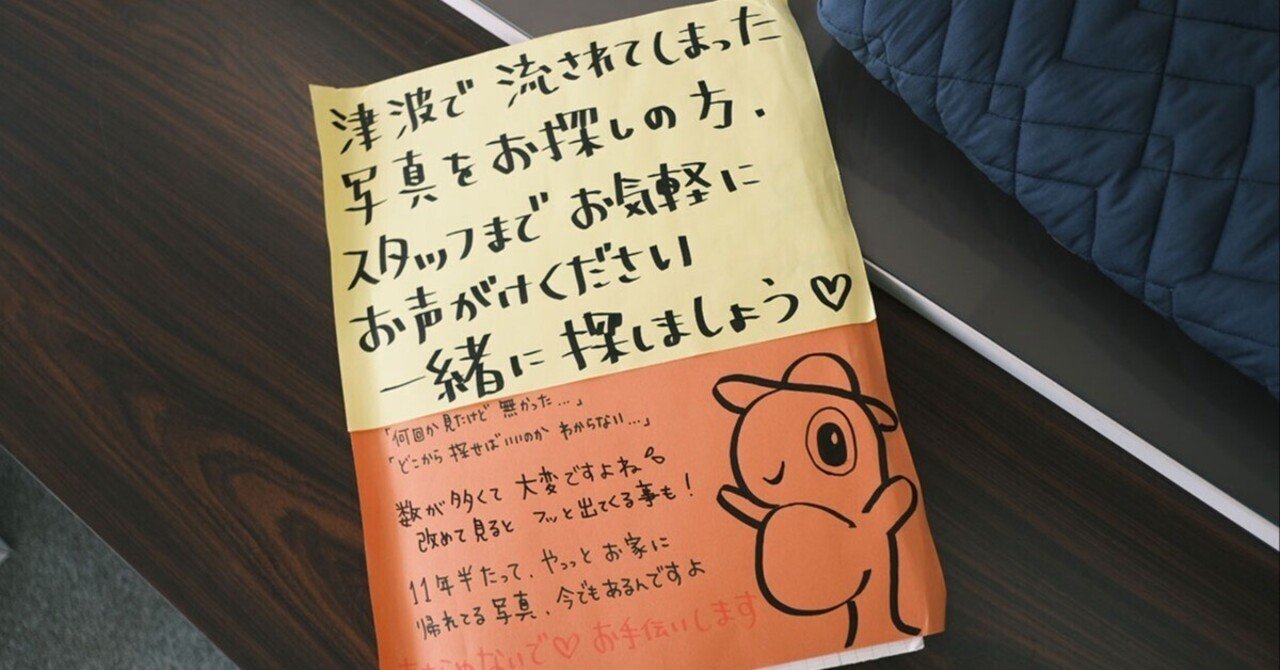 津波で 流されてしまった
写真をお探しの方、
スタッフまで お気軽に
お声がけください
一緒に 探しましょう♡
「何回か見たけど 無かった…」
「どこから 探せばいいのか わからない…」
数が多くて 大変ですよね
改めて見ると フッと出てくる事も！
11年半たって、やっっと お家に
帰れてる写真、今でもあるんですよ
あきらめないで♡ お手伝いします